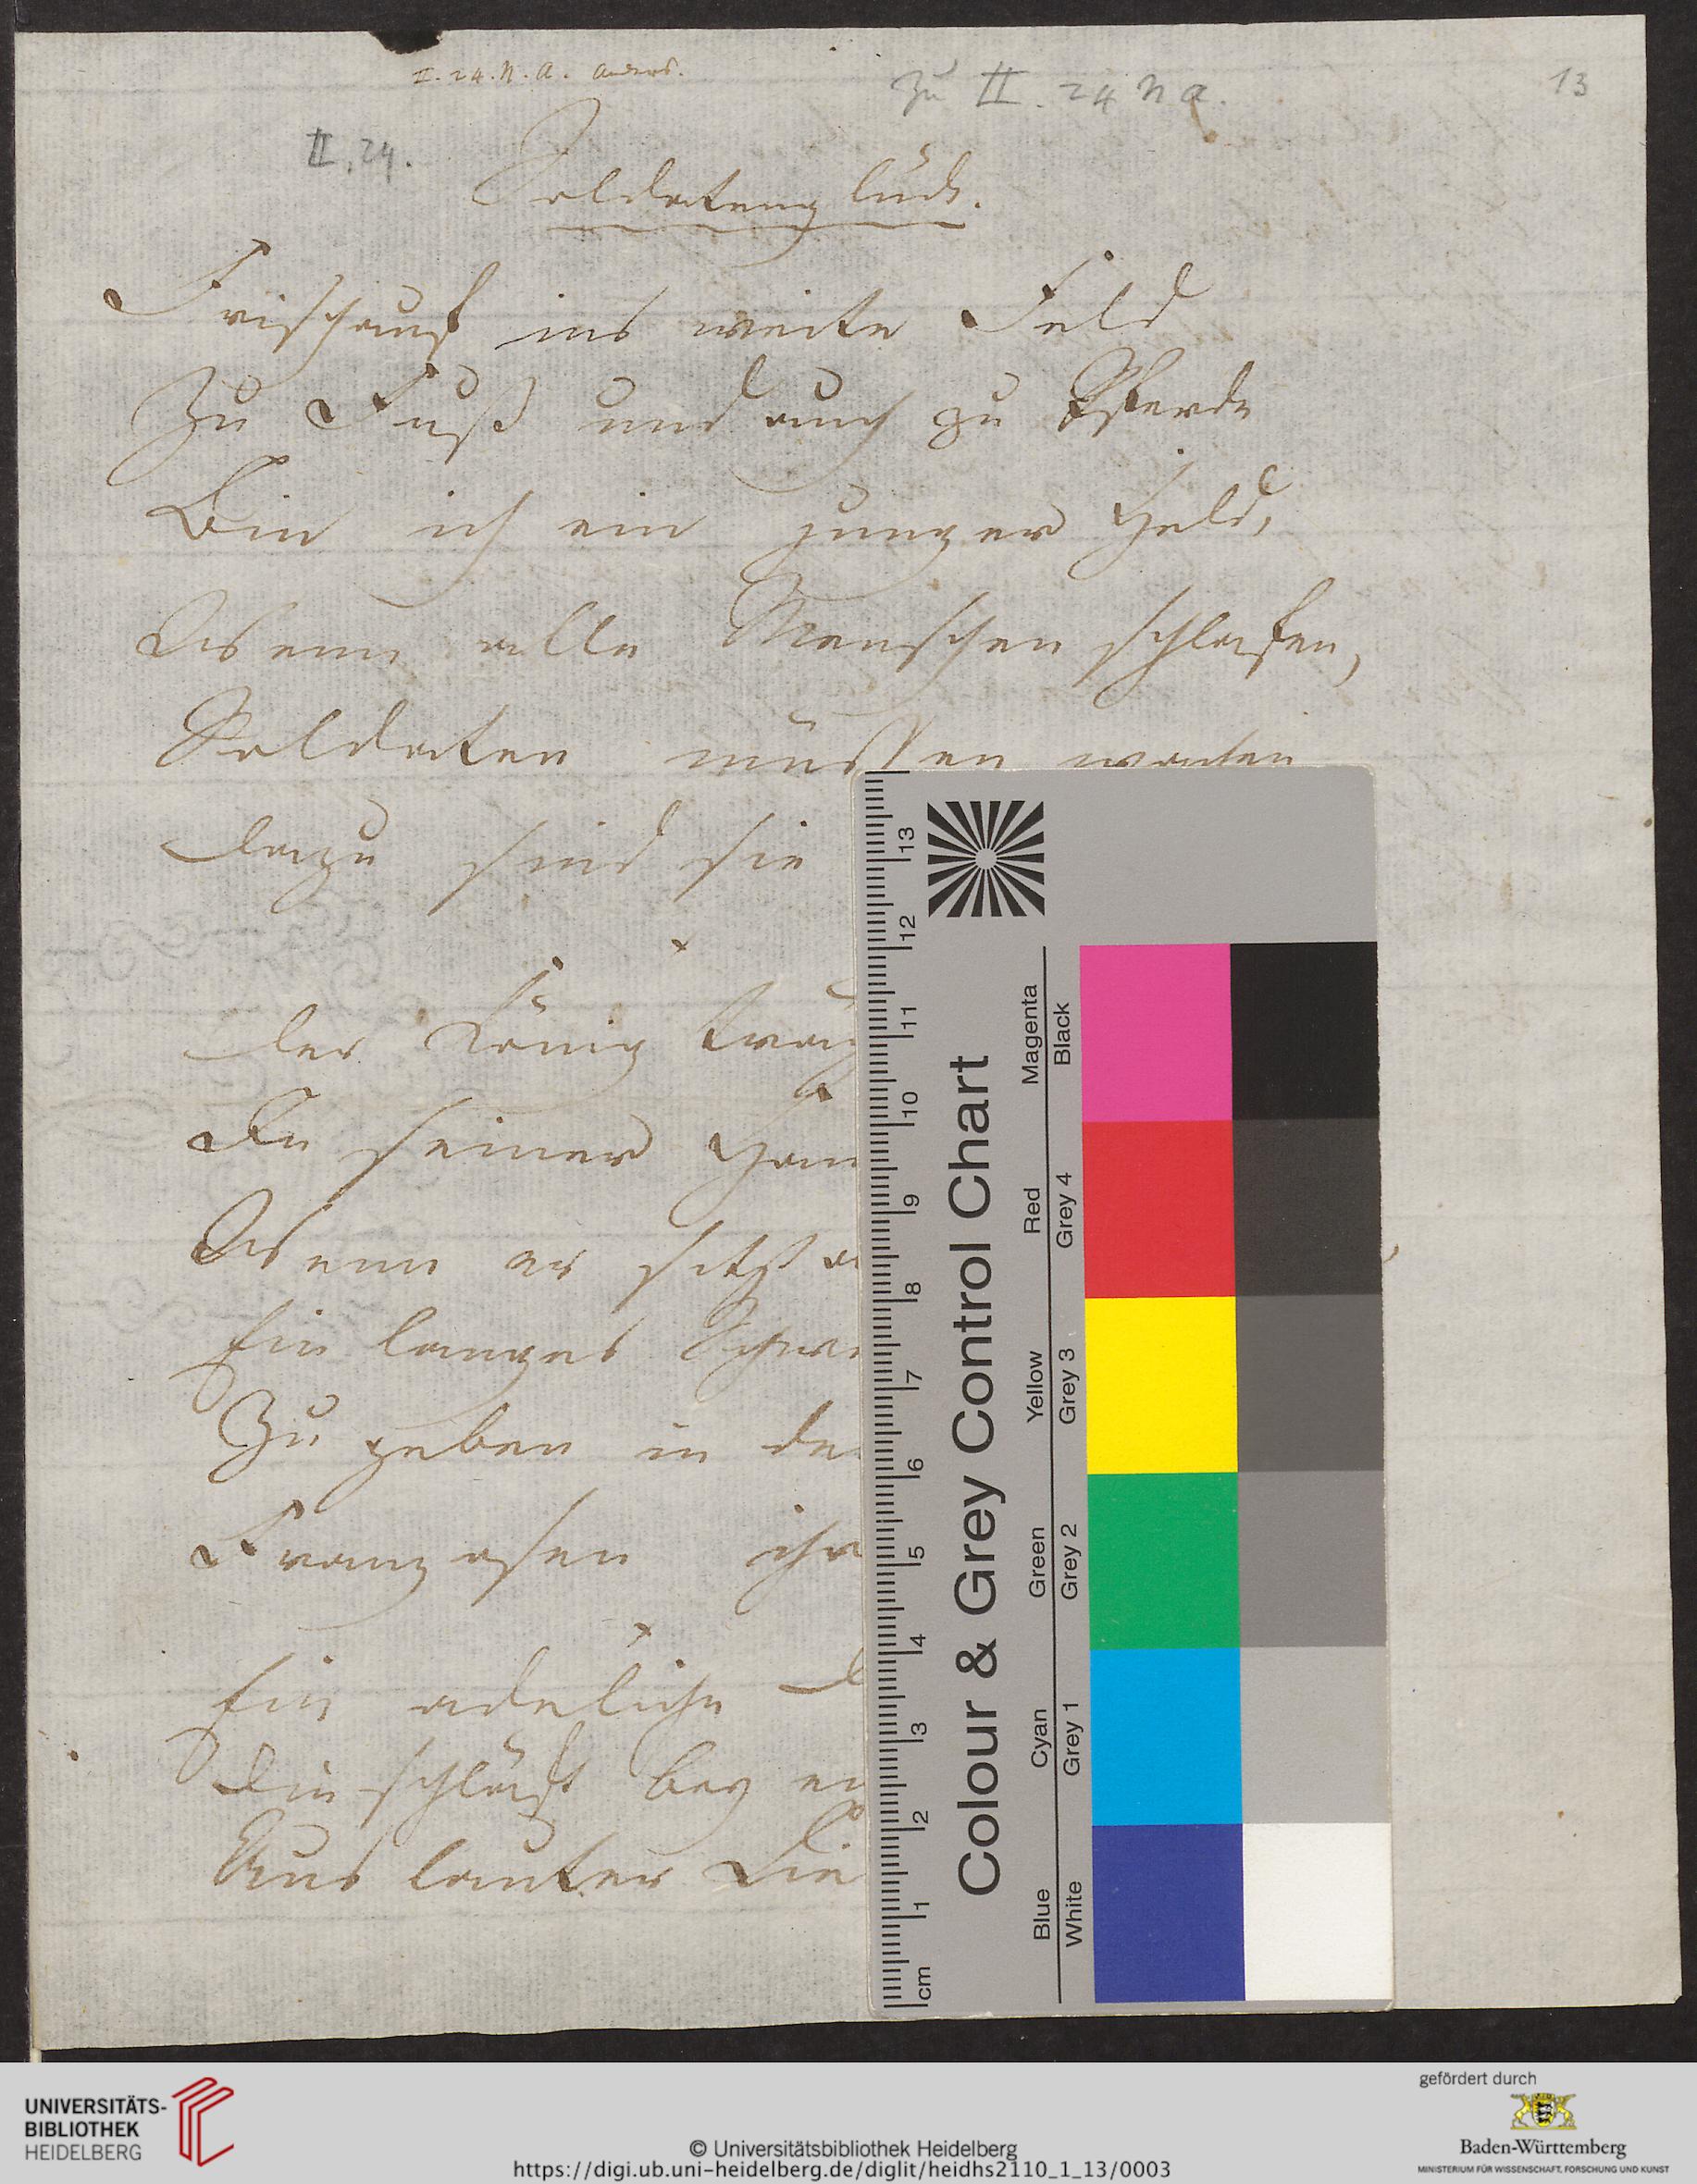 II. 24. N. A. anders.
zu II. 24 N a.
13
II, 24.
Soldatenglück.
Frischauf ins weite Feld
Zu Fuß und auch zu Pferde
Bin ich ein junger Held,
Wenn alle Menschen schlafen,
Soldaten müssen wachen
dazu sind sie
x
der König
In seiner
Wenn er sitzt
Ein langes
Zu geben in
Franzosen
x
Ein adeliche
die schläft bey
Aus lauter
13
12
11
10
9
8
7
6
5
4
3
2
1
cm
Colour & Grey Control Chart
Magenta
Red
Yellow
Green
Cyan
Blue
Black
Grey 4
Grey 3
Grey 2
Grey 1
White
UNIVERSITÄTS-
BIBLIOTHEK
HEIDELBERG
© Universitätsbibliothek Heidelberg
https://digi.ub.uni-heidelberg.de/diglit/heidhs2110_1_13/0003
gefördert durch
Baden-Württemberg
MINISTERIUM FÜR WISSENSCHAFT, FORSCHUNG UND KUNST